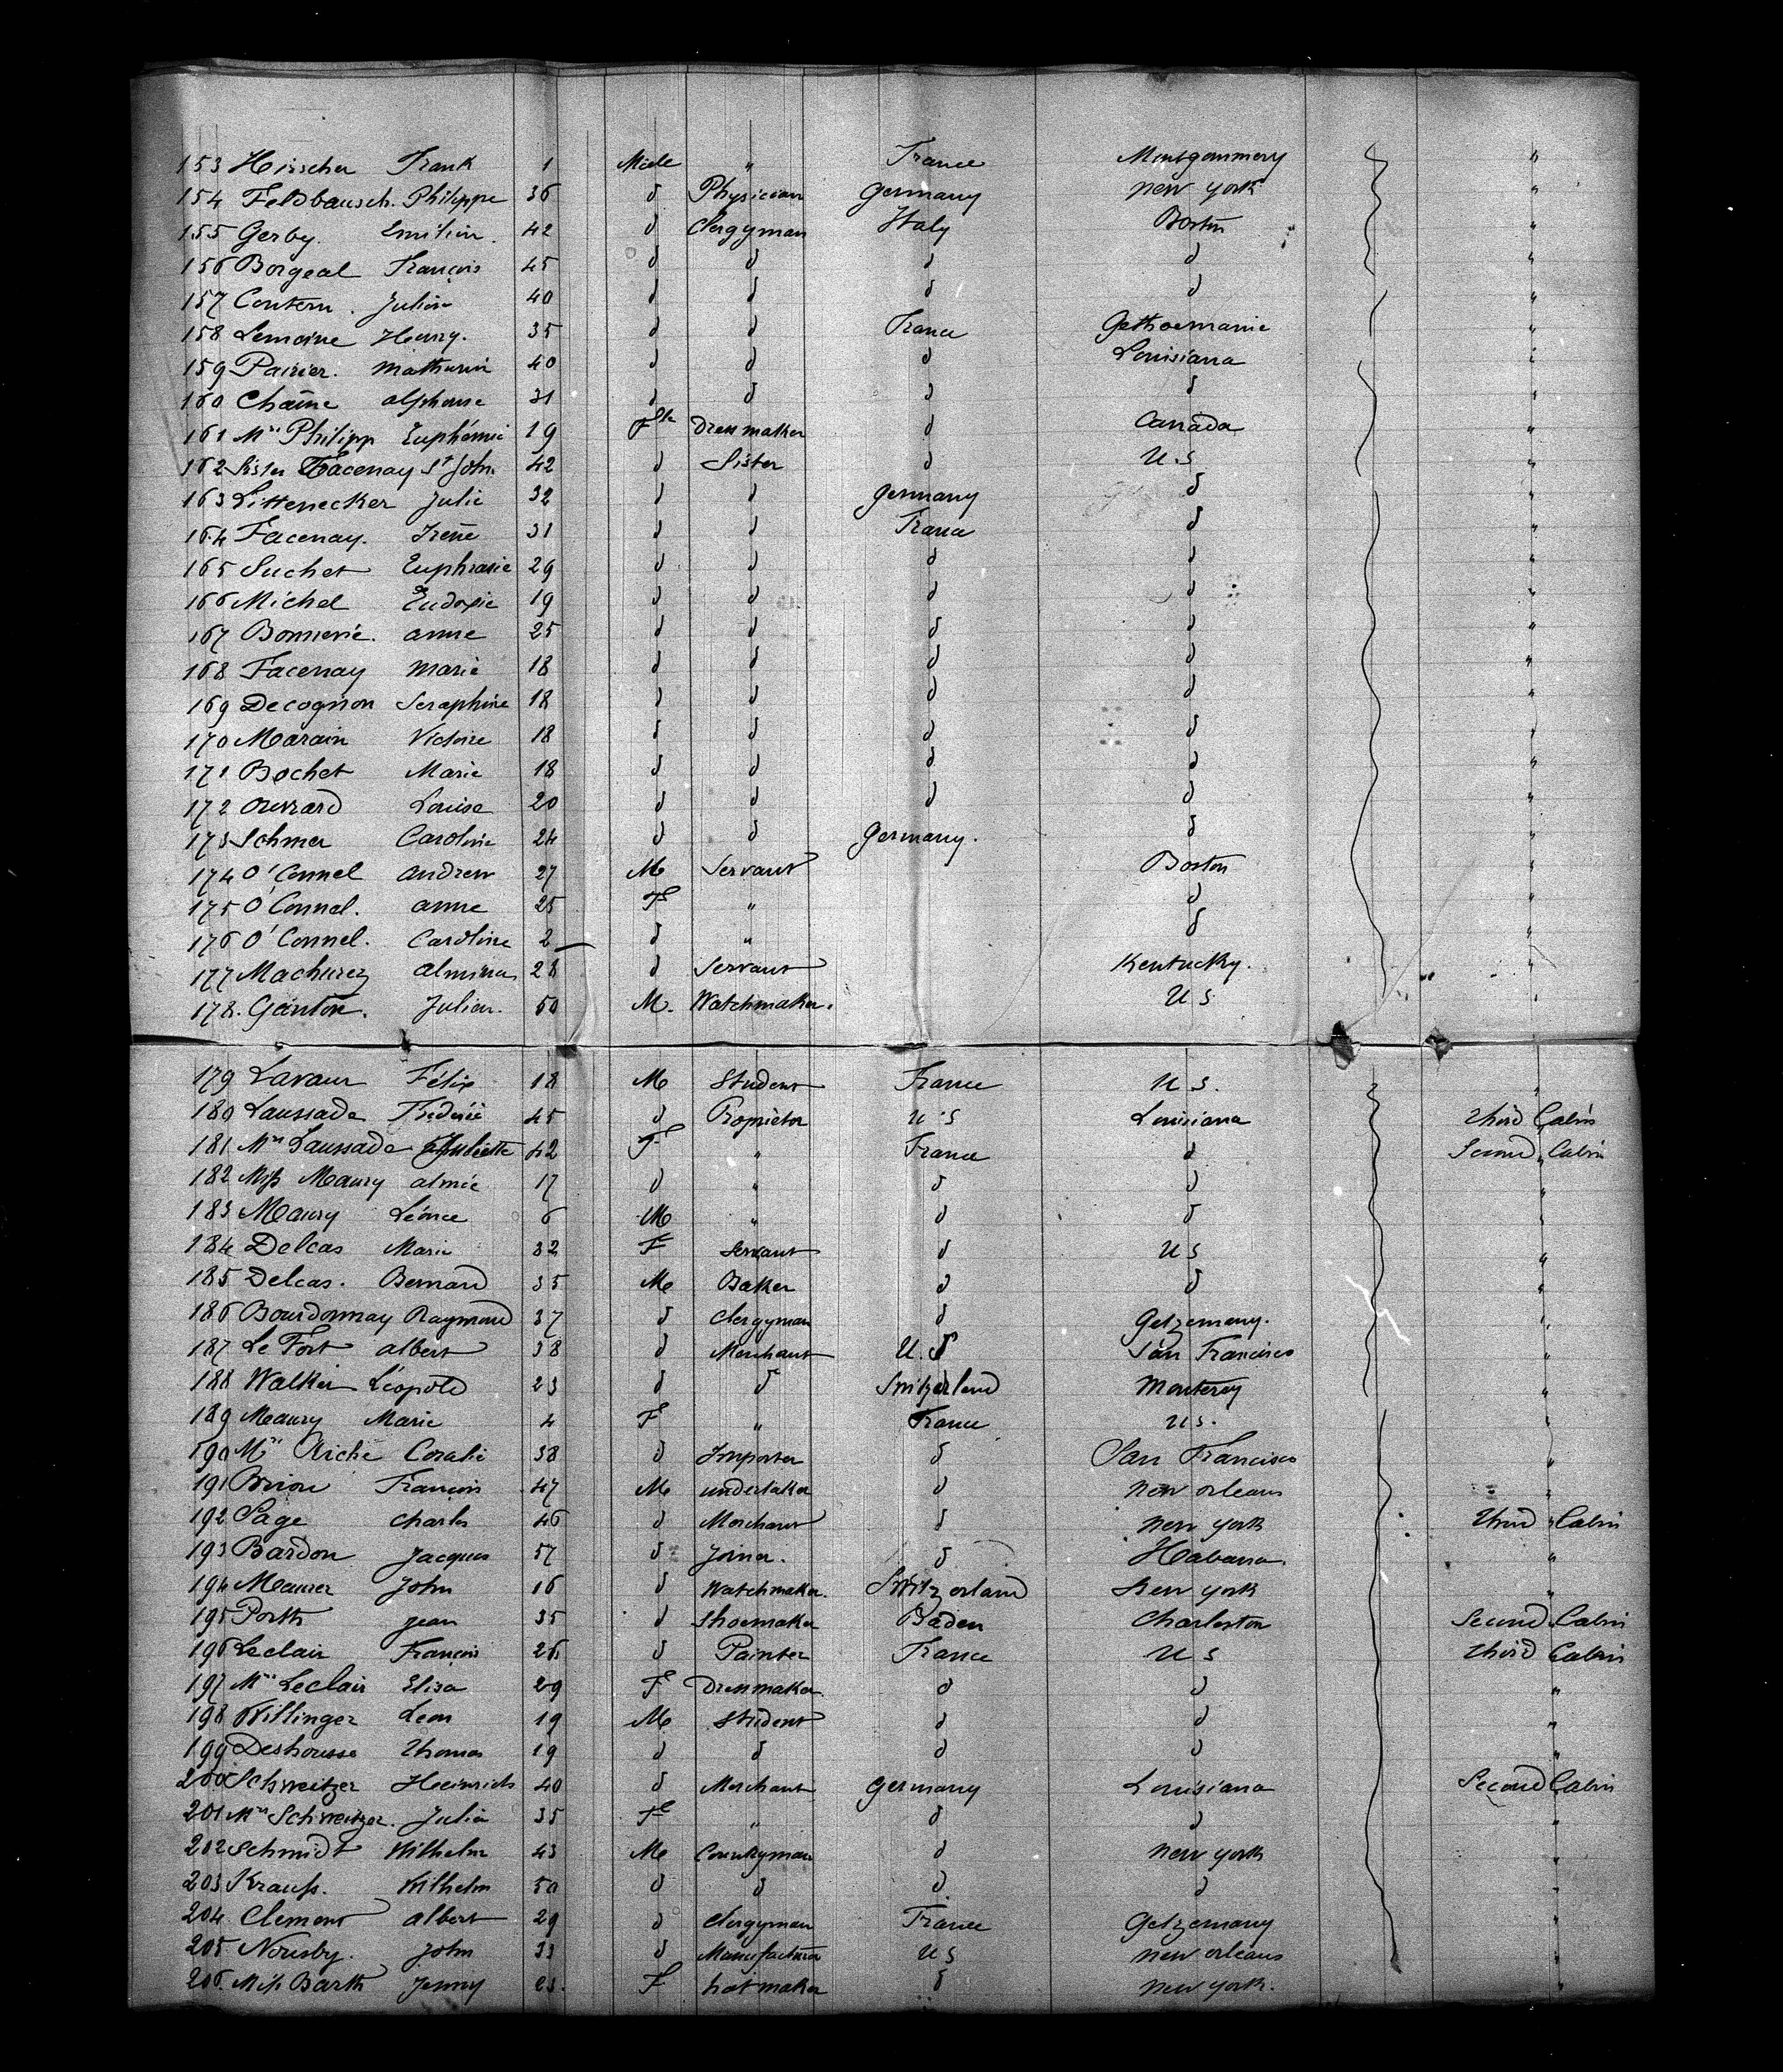 153 Hirscher Frank 1 Male " France Montgommery "
154 Feldbausch. Philippe 36 d Physician Germany New York "
155 Gerby. Emilien. 42 d Clergyman Italy Boston "
156 Borgeal François 45 d d d d "
157 Contern. Julien 40 d d d d "
158 Lemoine Henry. 35 d d France Gethoemanie "
159 Pairier. Mathurin 40 d d d Louisiana "
160 Chaîne Alphonse 31 d d d d "
161 Mrs Philipp Euphémie 19 Fle Dressmaker d Canada "
162 Sister Facenay St John 42 d Sister d U.S "
163 Littenecker Julie 32 d d Germany d "
164 Facenay. Irene 31 d d France d "
165 Suchet Euphrasie 29 d d d d "
166 Michel Eudoxie 19 d d d d "
167 Bonnerie. Anne 25 d d d d "
168 Facenay Marie 18 d d d d "
169 Decognon Seraphine 18 d d d d "
170 Marain Victoire 18 d d d d "
171 Bochet Marie 18 d d d d "
172 Ouvrard Louise 20 d d d d "
173 Sohmer Caroline 24 d d Germany. d "
174 O'Connel Andrew 27 M Servant Boston "
175 O'Connel. Anne 25 F " d "
176 O'Connel. Caroline 2 d " d "
177 Machurez Almina 28 d Servant Kentucky. "
178. Ganton. Julien. 50 M. Watchmaker. U S "
179 Lavaur Félix 18 M Student France U S. "
180 Laussade Frederic 45 d Proprietor U S Louisiana Third Cabin
181 Mrs Laussade Juliette 42 F " France d Second Cabin
182 Miss Maury Almée 17 d " d d "
183 Maury Léonce 6 M " d d "
184 Delcas Marie 32 F Servant d U S "
185 Delcas. Bernard 35 M Baker d d "
186 Bourdonnay Raymond 37 d Clergyman d Getzemany. "
187 Le Fort Albert 38 d Merchant U.S San Francisco "
188 Walker Léopold 23 d d Switzerland Monterey "
189 Maury Marie 4 F " France U S. "
190 Mrs Riche Coralie 38 d Importer d San Francisco "
191 Brion François 47 M Undertaker d New Orleans "
192 Sage Charles 46 d Merchant d New York Third Cabin
193 Bardon Jacques 57 d Joiner. d Habana. "
194 Maurer John 16 d Watchmaker. Switzerland New York "
195 Porth Jean 35 d Shoemaker Baden Charleston Second Cabin
196 Leclair François 26 d Painter France U S Third Cabin
197 Mrs Leclair Elisa 29 F Dressmaker d d "
198 Willinger Leon 19 M Student d d "
199 Deshousse Thomas 19 d d d d "
200 Schweitzer Heinrich 40 d Merchant Germany Louisiana Second Cabin
201 Mrs Schweitzer. Julia 35 F " d d "
202 Schmidt Wilhelm 43 M Countryman d New York "
203 Krauss. Wilhelm 50 d d d d "
204. Clement Albert 29 d Clergyman France Getzemany "
205 Norisby. John 33 d Manufacturer U S New Orleans "
206. Miss Barth Jenny 23. F Hat maker d New York. "